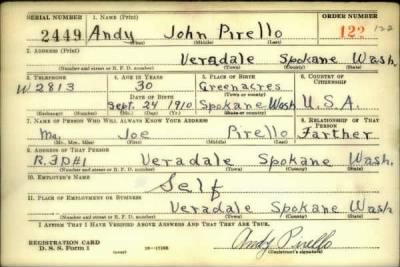 SERIAL NUMBER 1. NAME (Print) ORDER NUMBER
2449 Andy John Pirello 122 122
(First) (Middle) (Last)
2. ADDRESS (Print)
Veradale Spokane Wash.
(Number and street or R. F. D. number) (Town) (County) (State)
3. TELEPHONE 4. AGE IN YEARS 5. PLACE OF BIRTH 6. COUNTRY OF CITIZENSHIP
W2813 30 Greenacres
DATE OF BIRTH (Town or county)
Sept. 24 1910 Spokane Wash U.S.A.
(Exchange) (Number) (Mo.) (Day) (Yr.) (State or country)
7. NAME OF PERSON WHO WILL ALWAYS KNOW YOUR ADDRESS 8. RELATIONSHIP OF THAT PERSON
Mr. Joe Pirello Farther
(Mr., Mrs., Miss) (First) (Middle) (Last)
9. ADDRESS OF THAT PERSON
R.FD#1 Veradale Spokane Wash.
(Number and street or R. F. D. number) (Town) (County) (State)
10. EMPLOYER'S NAME
Self
11. PLACE OF EMPLOYMENT OR BUSINESS
Veradale Spokane Wash
(Number and street or R. F. D. number) (Town) (County) (State)
I AFFIRM THAT I HAVE VERIFIED ABOVE ANSWERS AND THAT THEY ARE TRUE.
REGISTRATION CARD Andy Pirello
D. S. S. Form 1 (Registrant's signature)